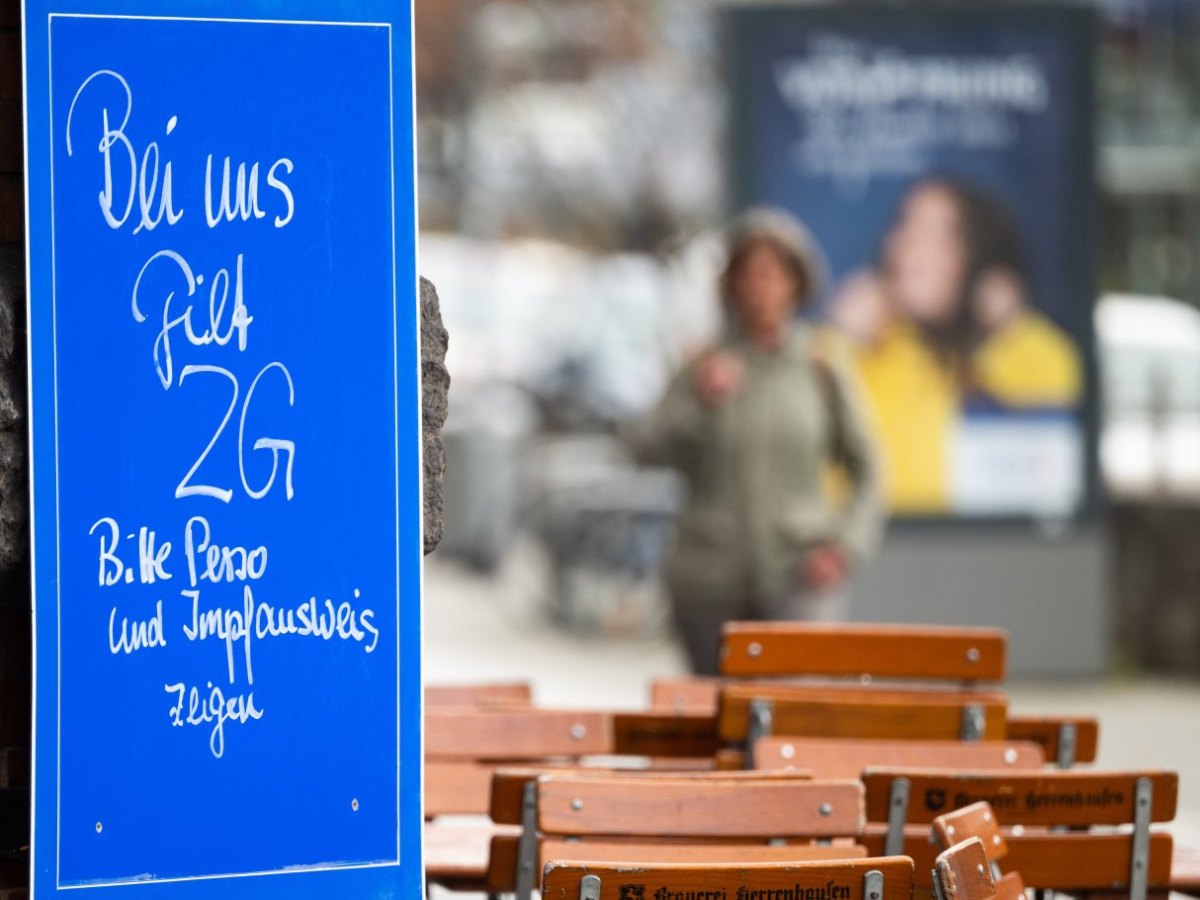 Bei uns
gilt
2G
Bitte Perso
und Impfausweis
zeigen
Brauerei Herrenhausen
Brauerei Herrenhausen